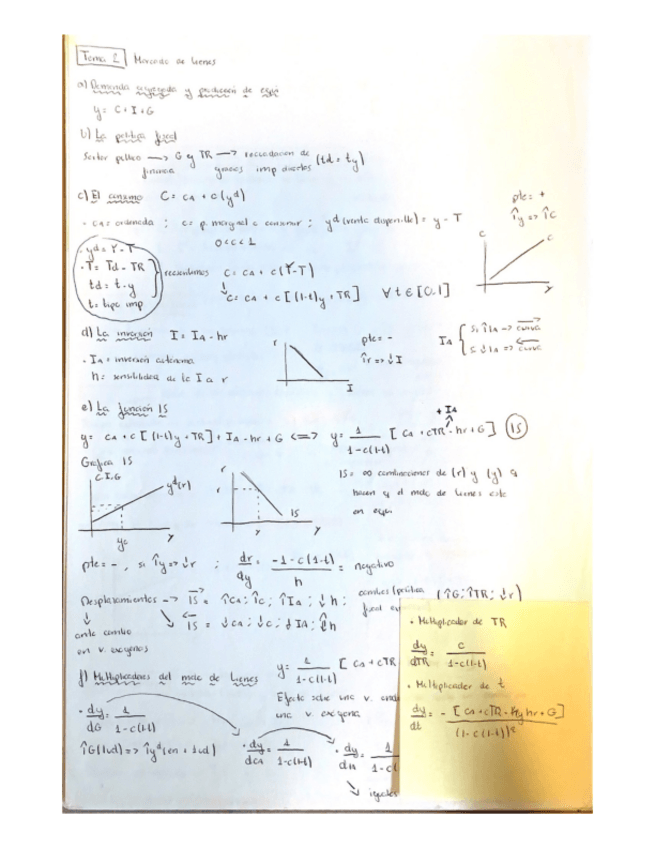 Tema 2 Mercado de bienes
a) Demanda agregada y producción de equi
y = C + I + G
b) La política fiscal
Sector público → G y TR → recaudación de (td = ty)
financia gracias imp directos
c) El consumo C = CA + c(yd)
ptc = +
↑y => ↑C
· CA = ordenada ; c = p. marginal a consumir ; yd (renta disponible) = y - T
0<c<1
· yd = Y - T
· T = Td - TR
td = t·y
t = tipo imp
C = CA + c(Y-T)
C = CA + c[(1-t)y + TR] ∀ t ∈ [0,1]
C
C
Y
d) La inversión I = IA - hr
· IA = inversión autónoma
h = sensibilidad de la I a r
r
I
pte = -
↑r => ↓I
IA { Si ↑IA => curva →
Si ↓IA => curva ←
e) La función IS
y = CA + c[(1-t)y + TR] + IA - hr + G <=> y = 1/1-c(1-t) [CA + cTR - hr + G] IS
+ IA
Gráfica IS
C,I,G
yd(r)
ye
Y
r
r
IS
y
IS = ∞ combinaciones de (r) y (y) q
hacen q el mdo de bienes esté
en equi
pte = -, si ↑y => ↓r ; dr/dy = -1-c(1-t)/h = negativo
Desplazamientos → IS → = ↑CA; ↑c; ↑IA; ↓h;
(↑G; ↑TR; ↓
↓
ante cambio
en v. exógenas
IS ← = ↓CA; ↓c; ↓IA; ↑h
f) Multiplicadores del mdo de bienes
y = 1/1-c(1-t) [CA + cTR
Efecto sobre una v.
una v. exógena
· dy/dG = 1/1-c(1-t)
↑G(1ud) => ↑yd (en + 1ud)
· dy/dCA = 1/1-c(1-t)
· dy/dIA = 1/1-c(
↘ iguales
· Multiplicador de TR
dy/dTR = c/1-c(1-t)
· Multiplicador de t
dy/dt = - [CA + cTR - hr + G]/(1-c(1-t))²